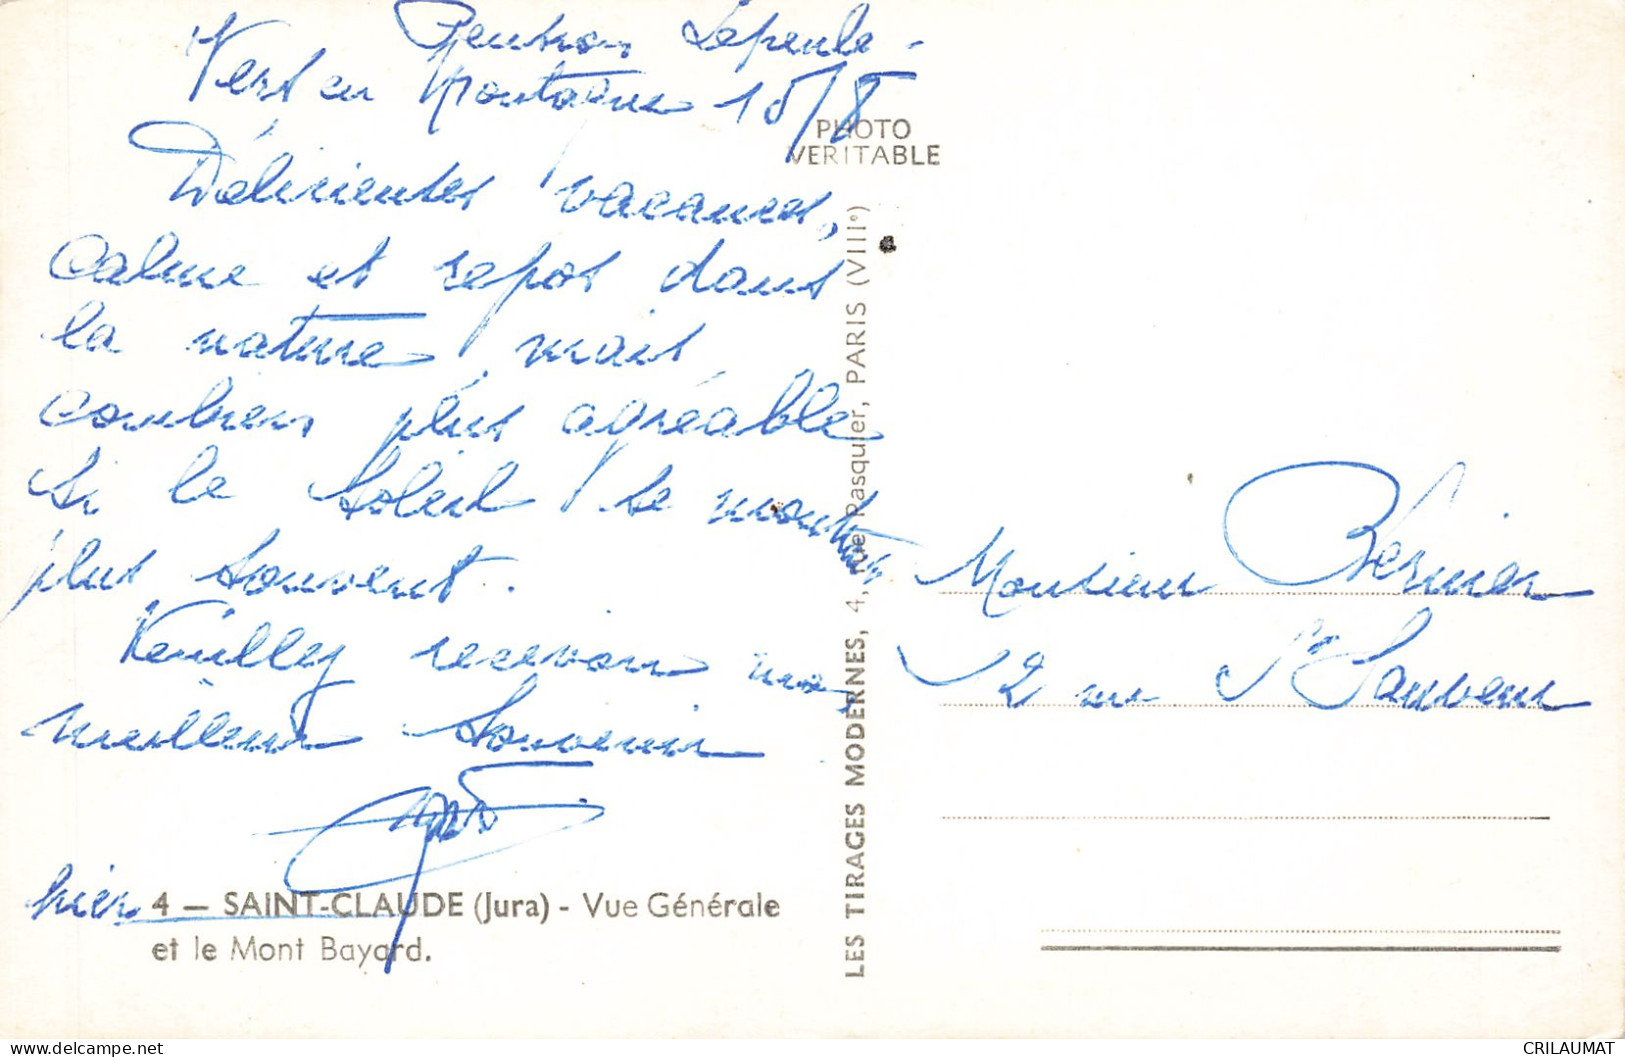 Pension Lepeule -
Vers en Montagne 15/8
Délirientes vacances,
Calme et repos dans
la nature, mais
combien plus agréable
si le soleil se montrait
plus souvent.
Veuillez recevoir nos
meilleurs souvenirs
hier
4 — SAINT-CLAUDE (Jura) - Vue Générale
et le Mont Bayard.
PHOTO
VERITABLE
LES TIRAGES MODERNES, 4, rue Pasquier, PARIS (VIII°)
Monsieur Bernier
2 rue St Sauveur
delcampe.net
CRILAUMAT